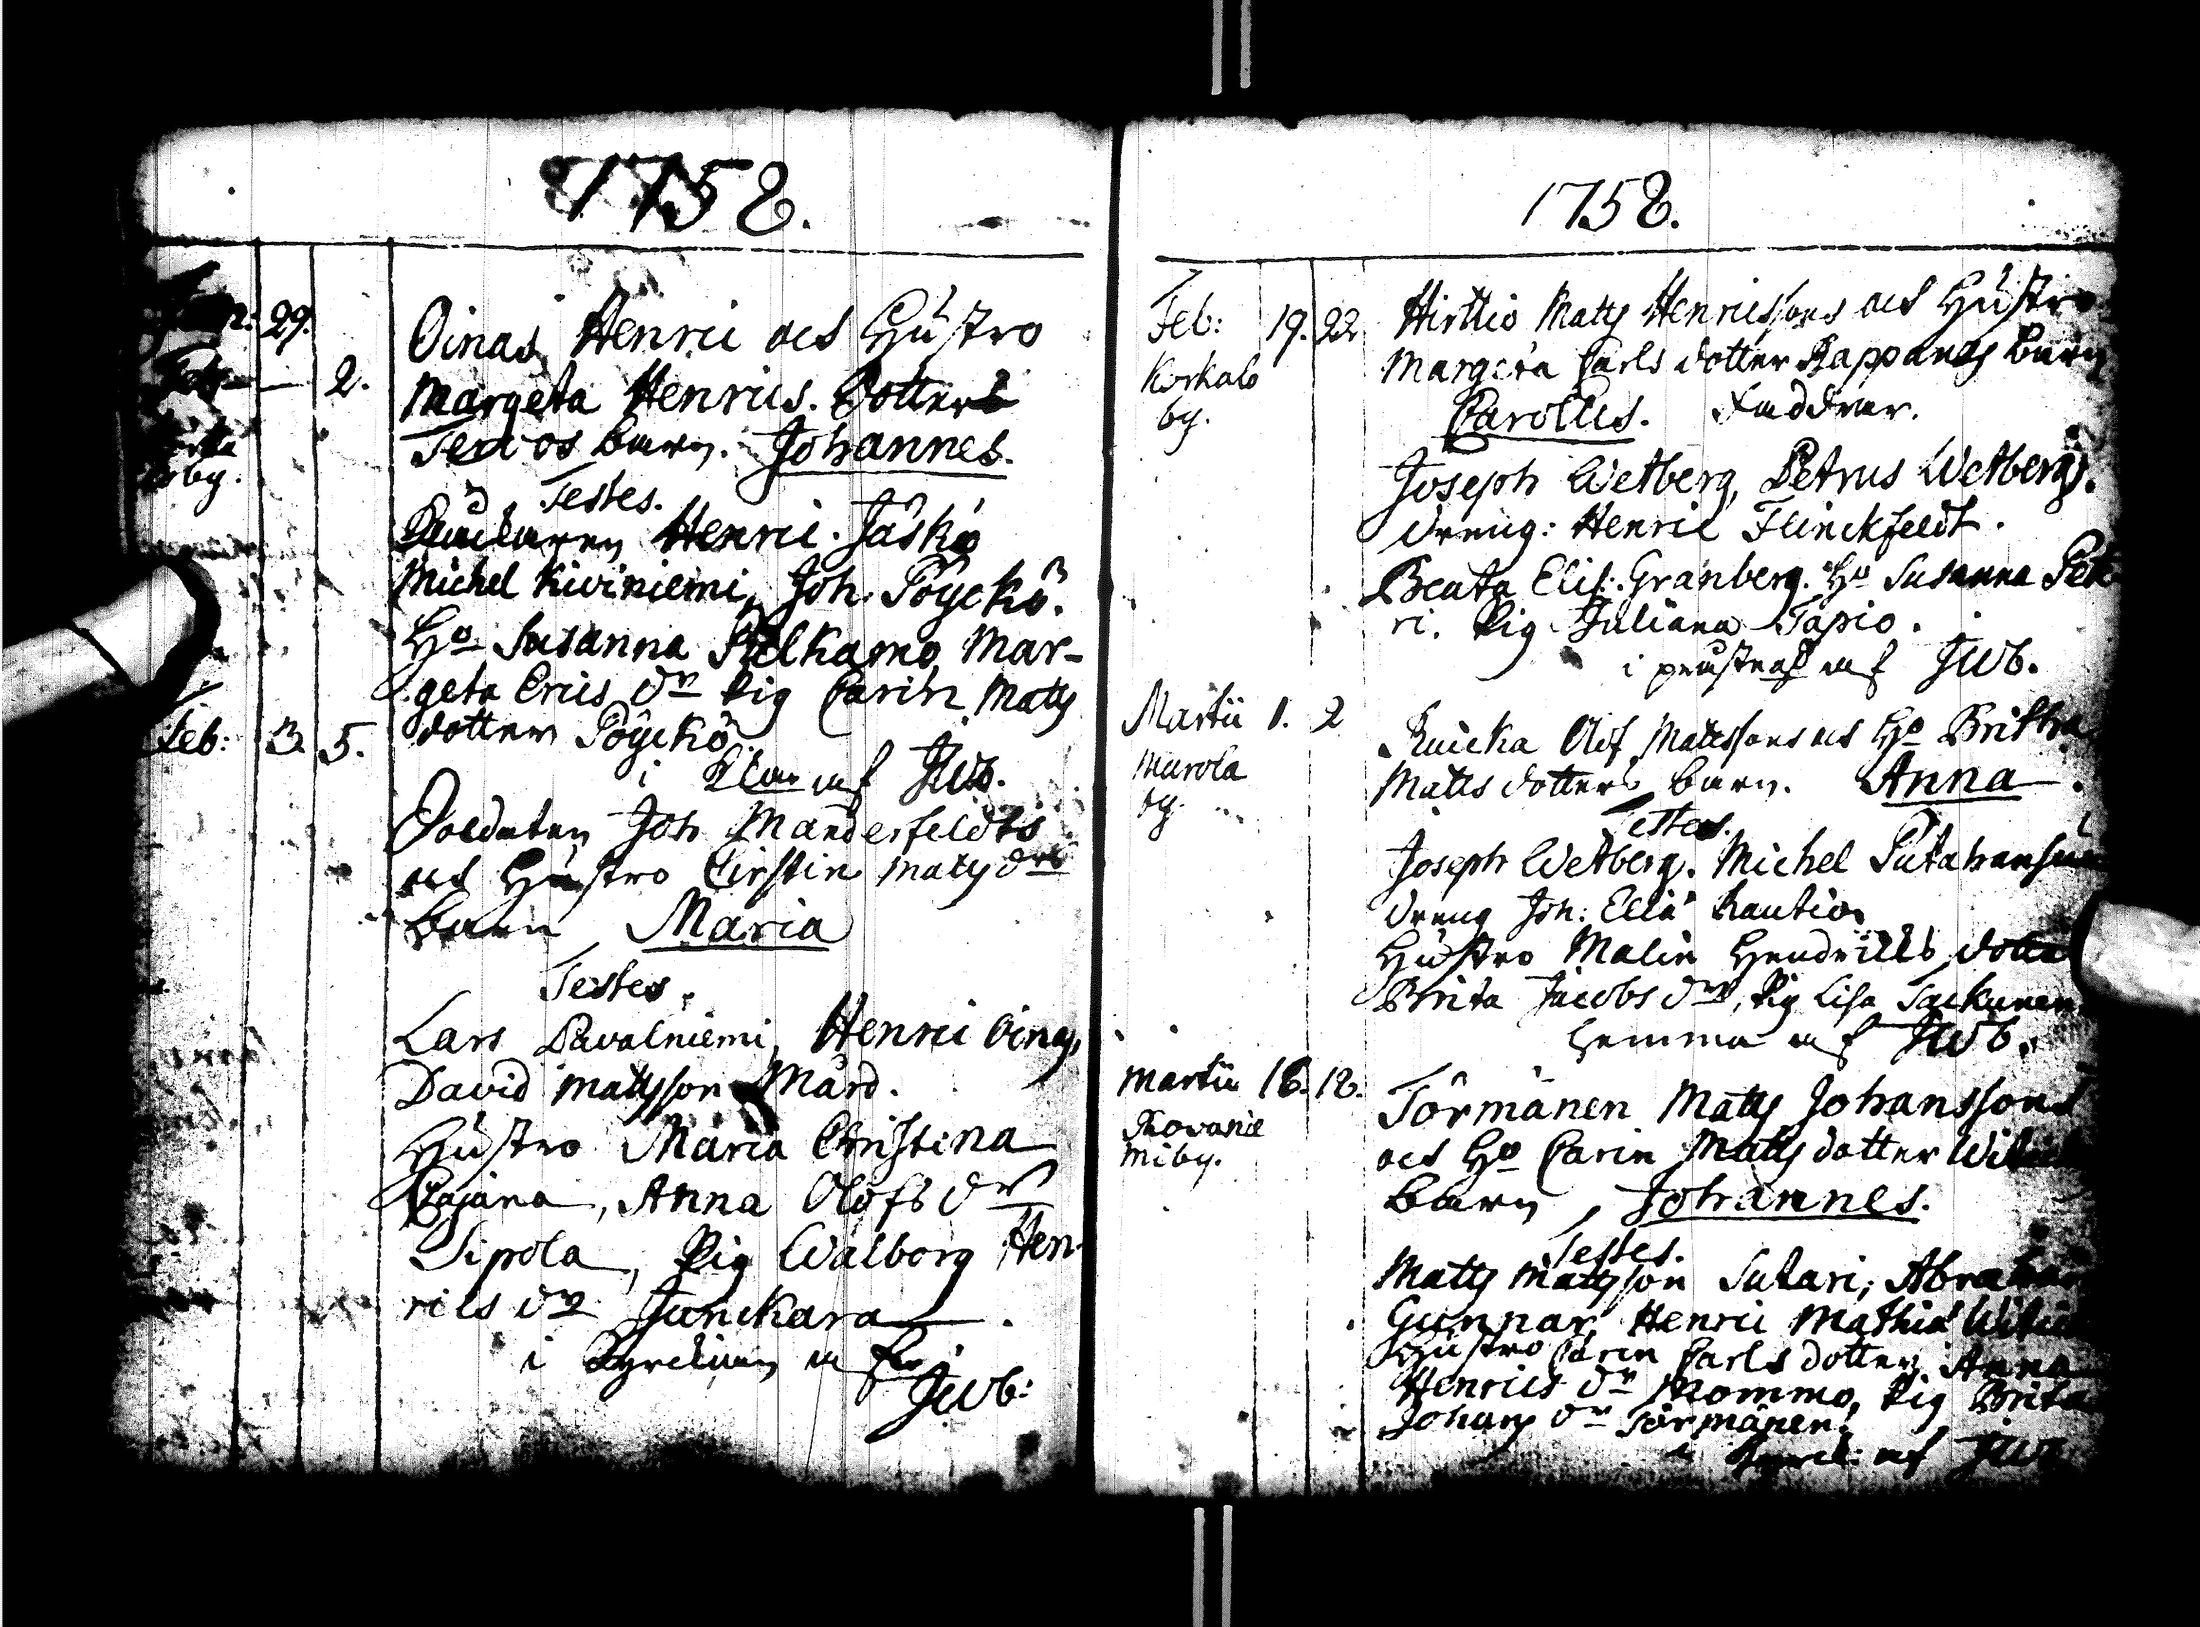 1758.
Jan: 29.
Feb: — 2.
by.
Oinas, Henric och Hustro
Margeta Henrics Dotters
Tervos barn. Johannes.
Testes.
Henric Jäskö
Michel Kiviniemi, Joh. Pöyckö.
Ho Susanna Pelkamo, Mar-
geta Erics dr Pig Carin Matts
dotter Pöyckö.
i af JWb.
Feb: 3. 5.
Soldaten Joh Manderfeldts
och Hustro Cirstin Matts drs
barn Maria
Testes.
Lars Pavalniemi, Henric Oinas,
David Mattsson Mård.
Hustro Maria Christina
Pajana, Anna Olofs dr
Sipola, Pig Walborg Hen-
rics dr Junckara.
i Kyrckian af
JWb:
1758.
Feb: 19. 22
Korkalo
by.
Hirttio Matts Henricssons och Hustro
Margeta Carls dotter Rappanas barn
Carollus. Faddrar.
Joseph Wetberg, Petrus Wetberg.
dreng: Henric Flinckfeldt.
Beata Elis: Granberg. Ho Susanna Pet
ri. Pig Juliana Tapio.
i af JWb.
Martii 1. 2
Marola
by.
Ruicka Olof Mattssons och Ho Brita
Matts dotters barn. Anna.
Testes.
Joseph Wetberg. Michel Putahansu
dreng Joh: Elia Kautio
Hustro Malin Hendrichs dotter
Brita Jacobs dr, Pig Lisa Tackunen
hemma af JWb.
Martii 18. 18.
Rovanie
mi by.
Törmänen Matts Johanssons
och Ho Carin Matts dotter
barn, Johannes.
Testes.
Matts Mattsson Sutari, Abraham
Gunnar, Henric Mathia
Hustro Carin Carls dotter, Anna
Henrics dr Mommo, Pig Brita
Johans dr Törmänen.
i Kyrck: af JWb